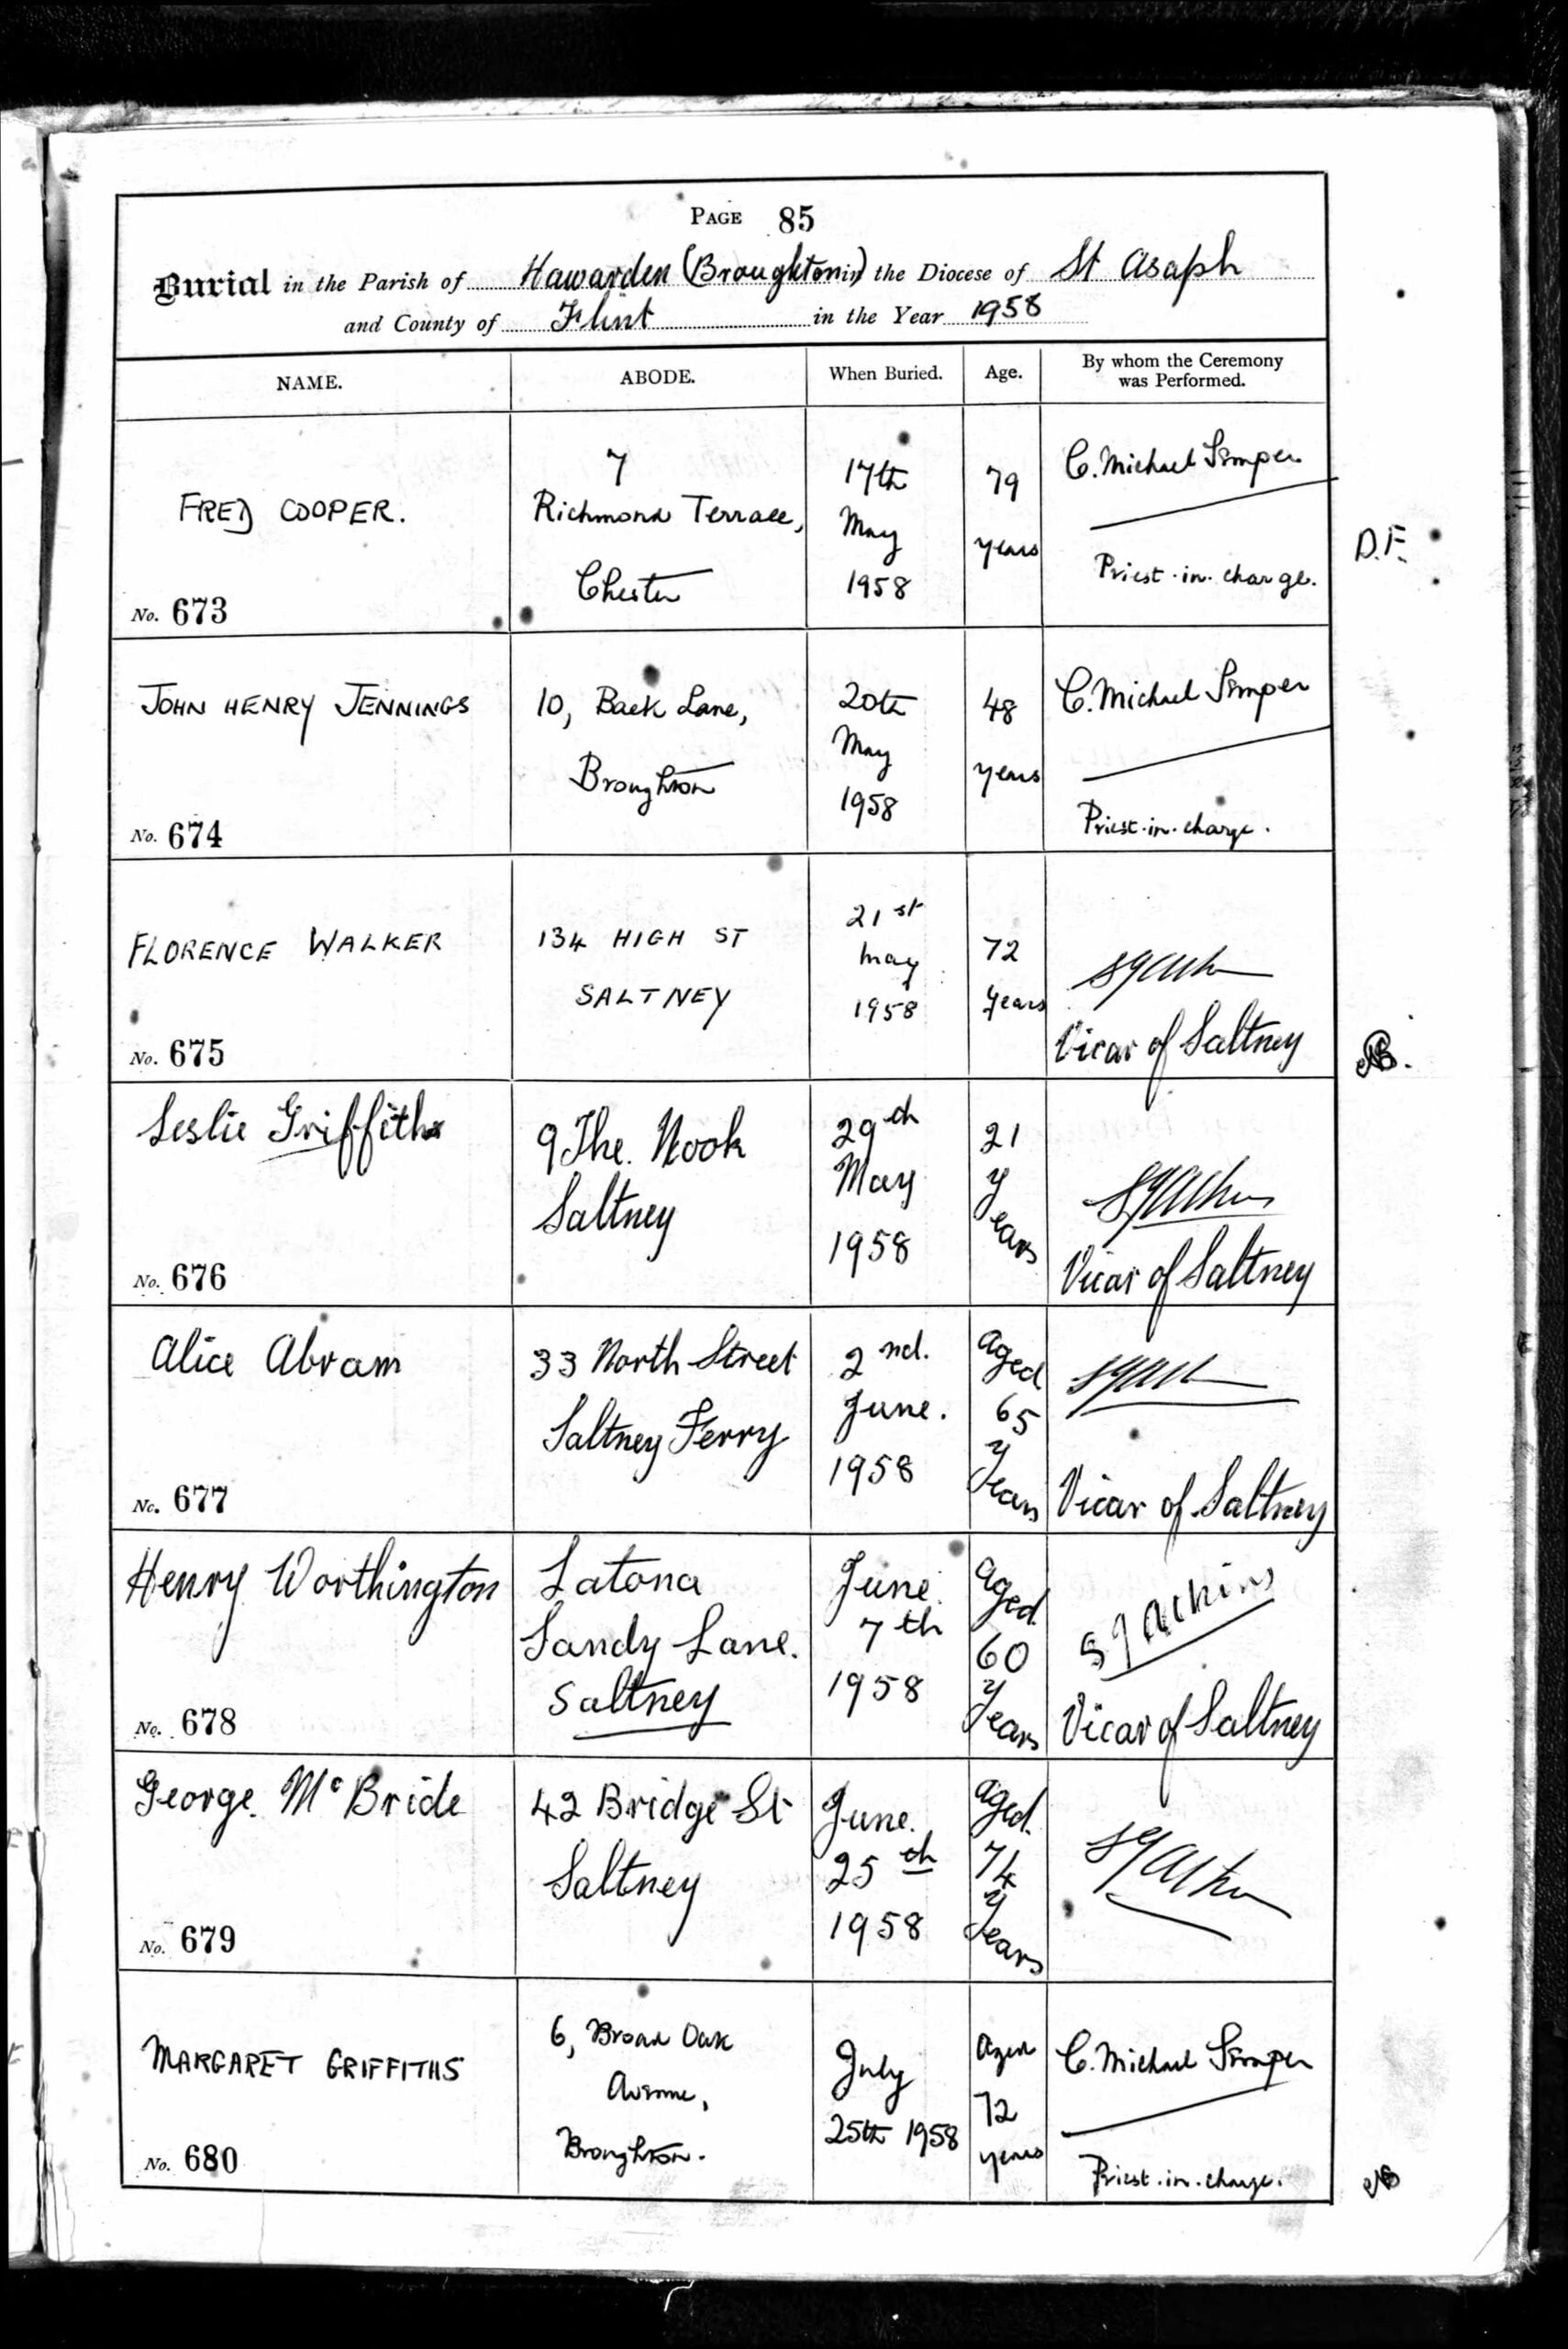 PAGE 85
Burial in the Parish of Hawarden (Broughton) in the Diocese of St Asaph
and County of Flint in the Year 1958
NAME. ABODE. When Buried. Age. By whom the Ceremony was Performed.
FRED COOPER.
No. 673
7
Richmond Terrace,
Chester
17th
May
1958
79
years
C. Michael Semper
Priest-in-charge.
D.F.
JOHN HENRY JENNINGS
No. 674
10, Back Lane,
Broughton
20th
May
1958
48
years
C. Michael Semper
Priest-in-charge.
FLORENCE WALKER
No. 675
134 HIGH ST
SALTNEY
21st
May
1958
72
years
Vicar of Saltney
Leslie Griffiths
No. 676
9 The Nook
Saltney
29th
May
1958
21
years
Vicar of Saltney
Alice Abram
No. 677
33 North Street
Saltney Ferry
2nd.
June.
1958
aged
65
years
Vicar of Saltney
Henry Worthington
No. 678
Latona
Sandy Lane.
Saltney
June
7th
1958
aged
60
years
S J Atkins
Vicar of Saltney
George McBride
No. 679
42 Bridge St
Saltney
June.
25th
1958
aged.
74
years
MARGARET GRIFFITHS
No. 680
6, Broad Oak
Avenue,
Broughton.
July
25th 1958
Aged
72
years
C. Michael Semper
Priest-in-charge.